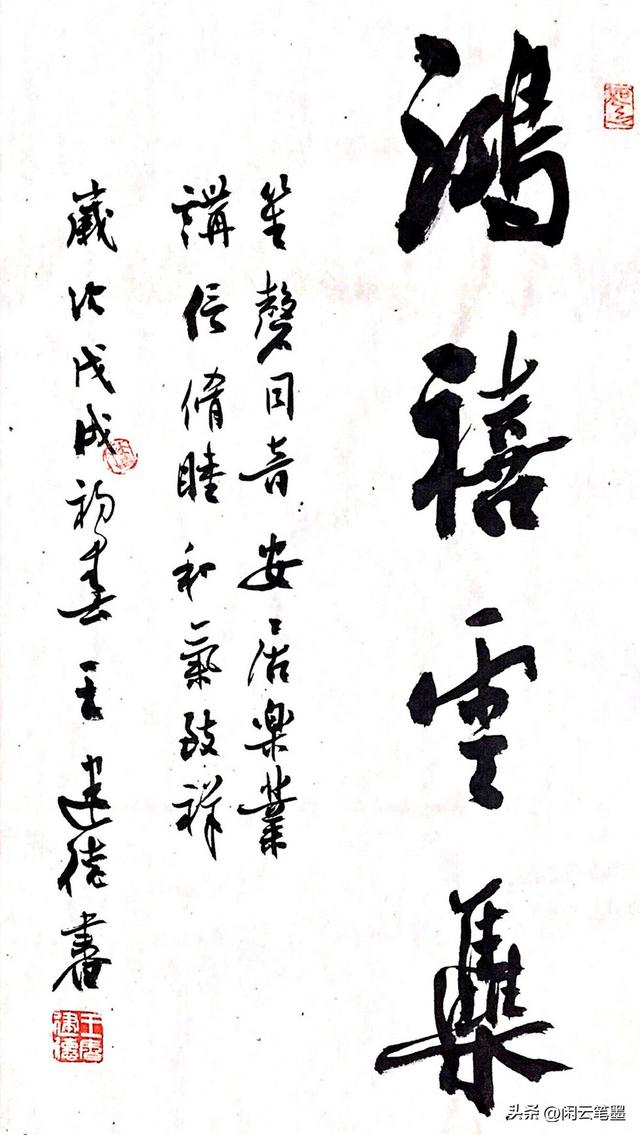 鴻禧雲集
笙磬同音安居樂業
講信脩睦和氣致祥
歲次戊戌初春王建德書
头条 @闲云笔墨